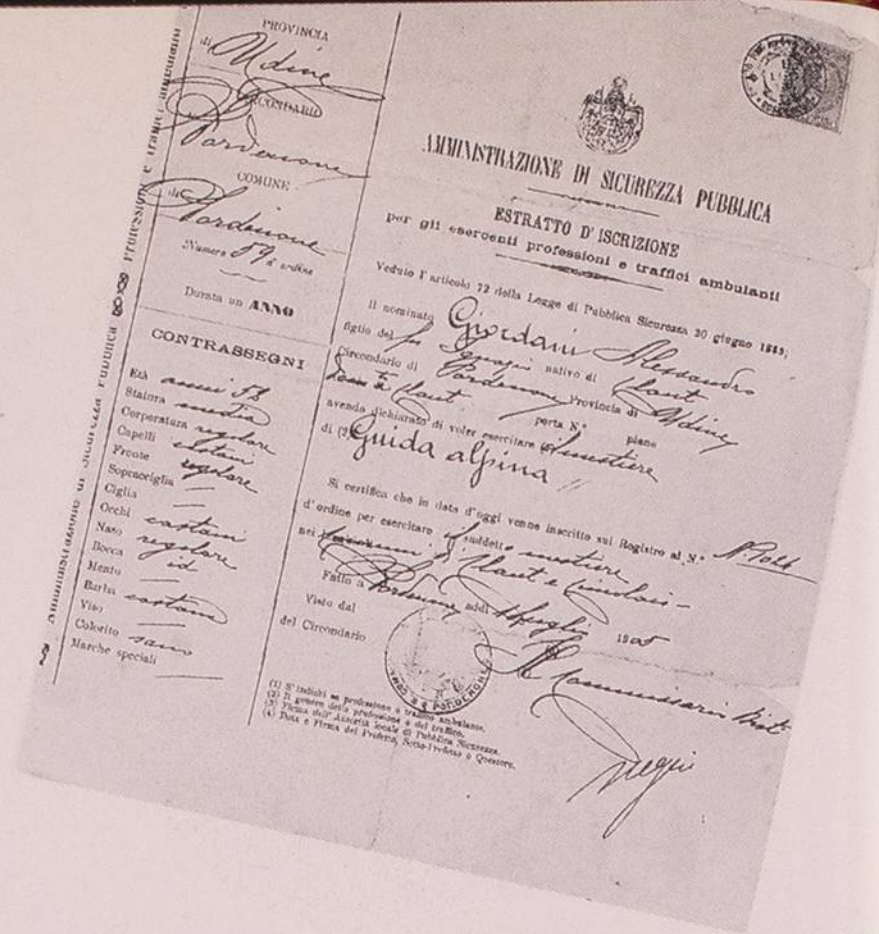 Amministrazione di Sicurezza Pubblica
Professioni e traffici ambulanti
PROVINCIA
di Udine
CIRCONDARIO
Pordenone
COMUNE
di Pordenone
Numero 59 d'ordine
Durata un ANNO
CONTRASSEGNI
Età anni 58
Statura media
Corporatura regolare
Capelli castani
Fronte regolare
Sopracciglia —
Ciglia —
Occhi castani
Naso regolare
Bocca id
Mento —
Barba castana
Viso —
Colorito sano
Marche speciali —
AMMINISTRAZIONE DI SICUREZZA PUBBLICA
ESTRATTO D'ISCRIZIONE
per gli esercenti professioni e traffici ambulanti
Veduto l'articolo 72 della Legge di Pubblica Sicurezza 30 giugno 1889;
Il nominato Giordani Alessandro
figlio del fu nativo di Claut
Circondario di Pordenone Provincia di Udine
Claut porta N.° piano
avendo dichiarato di voler esercitare il mestiere
di (2) Guida alpina
Si certifica che in data d'oggi venne inscritto sul Registro al N.°
d'ordine per esercitare il suddetto mestiere
nei Claut e Cimolais
Fatto a Pordenone addì luglio 1905
Visto dal Il Commissario
del Circondario
PORDENONE
(1) S'indichi se professione o traffico ambulante.
(2) Il genere della professione o del traffico.
(3) Firma dell'Autorità locale di Pubblica Sicurezza.
(4) Data e Firma del Prefetto, Sotto-Prefetto o Questore.